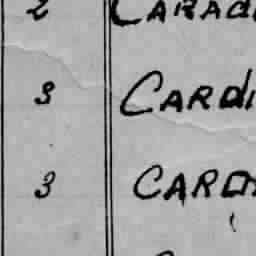 2 CARAd
3 CARdi
3 CARD